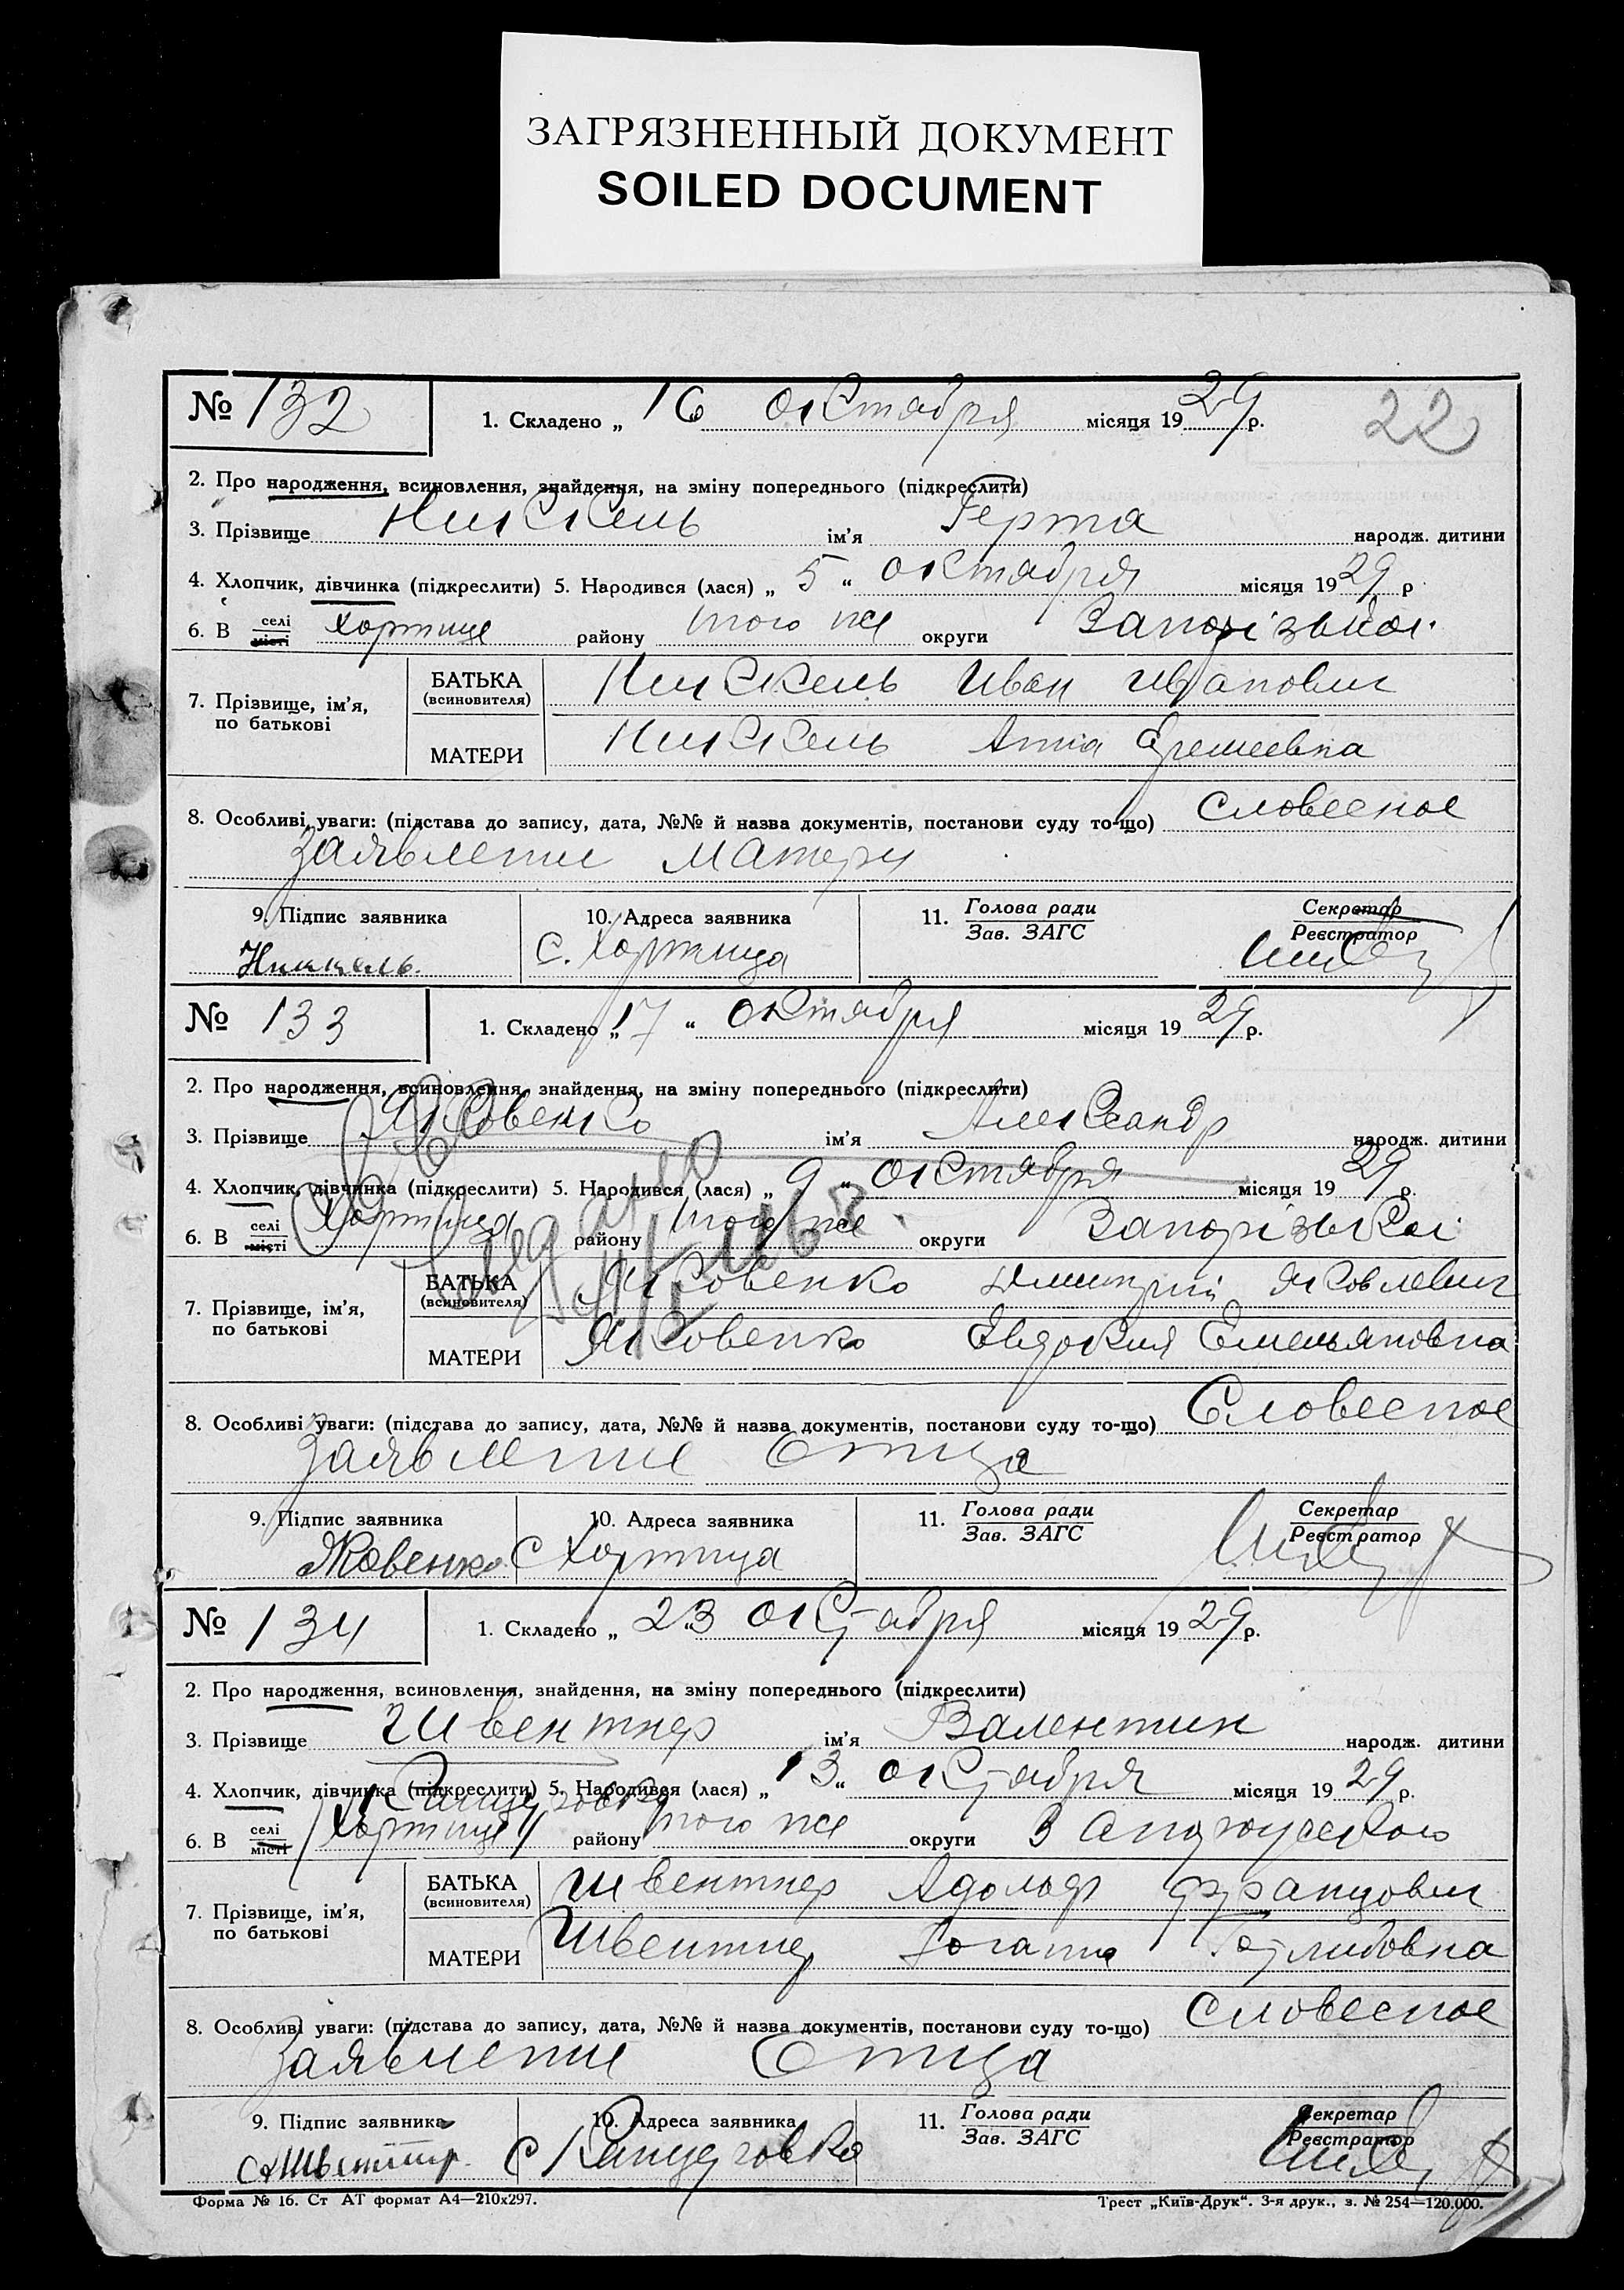 ЗАГРЯЗНЕННЫЙ ДОКУМЕНТ
SOILED DOCUMENT
№ 132 1. Складено „ 16 октября місяця 1929 р. 22
2. Про народження, всиновлення, знайдення, на зміну попереднього (підкреслити)
3. Прізвище Никкель ім'я Герта народж. дитини
4. Хлопчик, дівчинка (підкреслити) 5. Народився (лася) „ 5 “ октября місяця 1929 р
6. В селі місті Хортице району того же округи Запорізької
7. Прізвище, ім'я, по батькові
БАТЬКА (всиновителя) Никкель Иван Иванович
МАТЕРИ Никкель Анна
8. Особливі уваги: (підстава до запису, дата, №№ й назва документів, постанови суду то-що) словесное
заявление матери
9. Підпис заявника 10. Адреса заявника 11. Голова ради Зав. ЗАГС Секретар Реєстратор
Никкель. с. Хортица
№ 133 1. Складено „ 17 “ октября місяця 1929 р.
2. Про народження, всиновлення, знайдення, на зміну попереднього (підкреслити)
3. Прізвище Яковенко ім'я Александр народж. дитини
4. Хлопчик, дівчинка (підкреслити) 5. Народився (лася) „ 9 “ октября місяця 1929 р.
6. В селі місті Хортица району того же округи Запорізької
7. Прізвище, ім'я, по батькові
БАТЬКА (всиновителя) Яковенко Дмитрий Яковлевич
МАТЕРИ Яковенко Евдокия Емельяновна
8. Особливі уваги: (підстава до запису, дата, №№ й назва документів, постанови суду то-що) Словесное
заявление отца
9. Підпис заявника 10. Адреса заявника 11. Голова ради Зав. ЗАГС Секретар Реєстратор
Яковенко с Хортица
№ 134 1. Складено „ 23 “ октября місяця 1929 р.
2. Про народження, всиновлення, знайдення, на зміну попереднього (підкреслити)
3. Прізвище Швентнер ім'я Валентин народж. дитини
4. Хлопчик, дівчинка (підкреслити) 5. Народився (лася) „ 13 “ октября місяця 1929 р.
Канцеровка
6. В селі місті Хортице району того же округи
7. Прізвище, ім'я, по батькові
БАТЬКА (всиновителя) Швентнер Адольф Францович
МАТЕРИ Швентнер Иоганна Готлибовна
8. Особливі уваги: (підстава до запису, дата, №№ й назва документів, постанови суду то-що) словесное
заявление отца
9. Підпис заявника 10. Адреса заявника 11. Голова ради Зав. ЗАГС Секретар Реєстратор
АШвентнер. с Канцеровка
Форма № 16. Ст АТ формат А4—210х297. Трест „Київ-Друк“. 3-я друк., з. № 254—120.000.